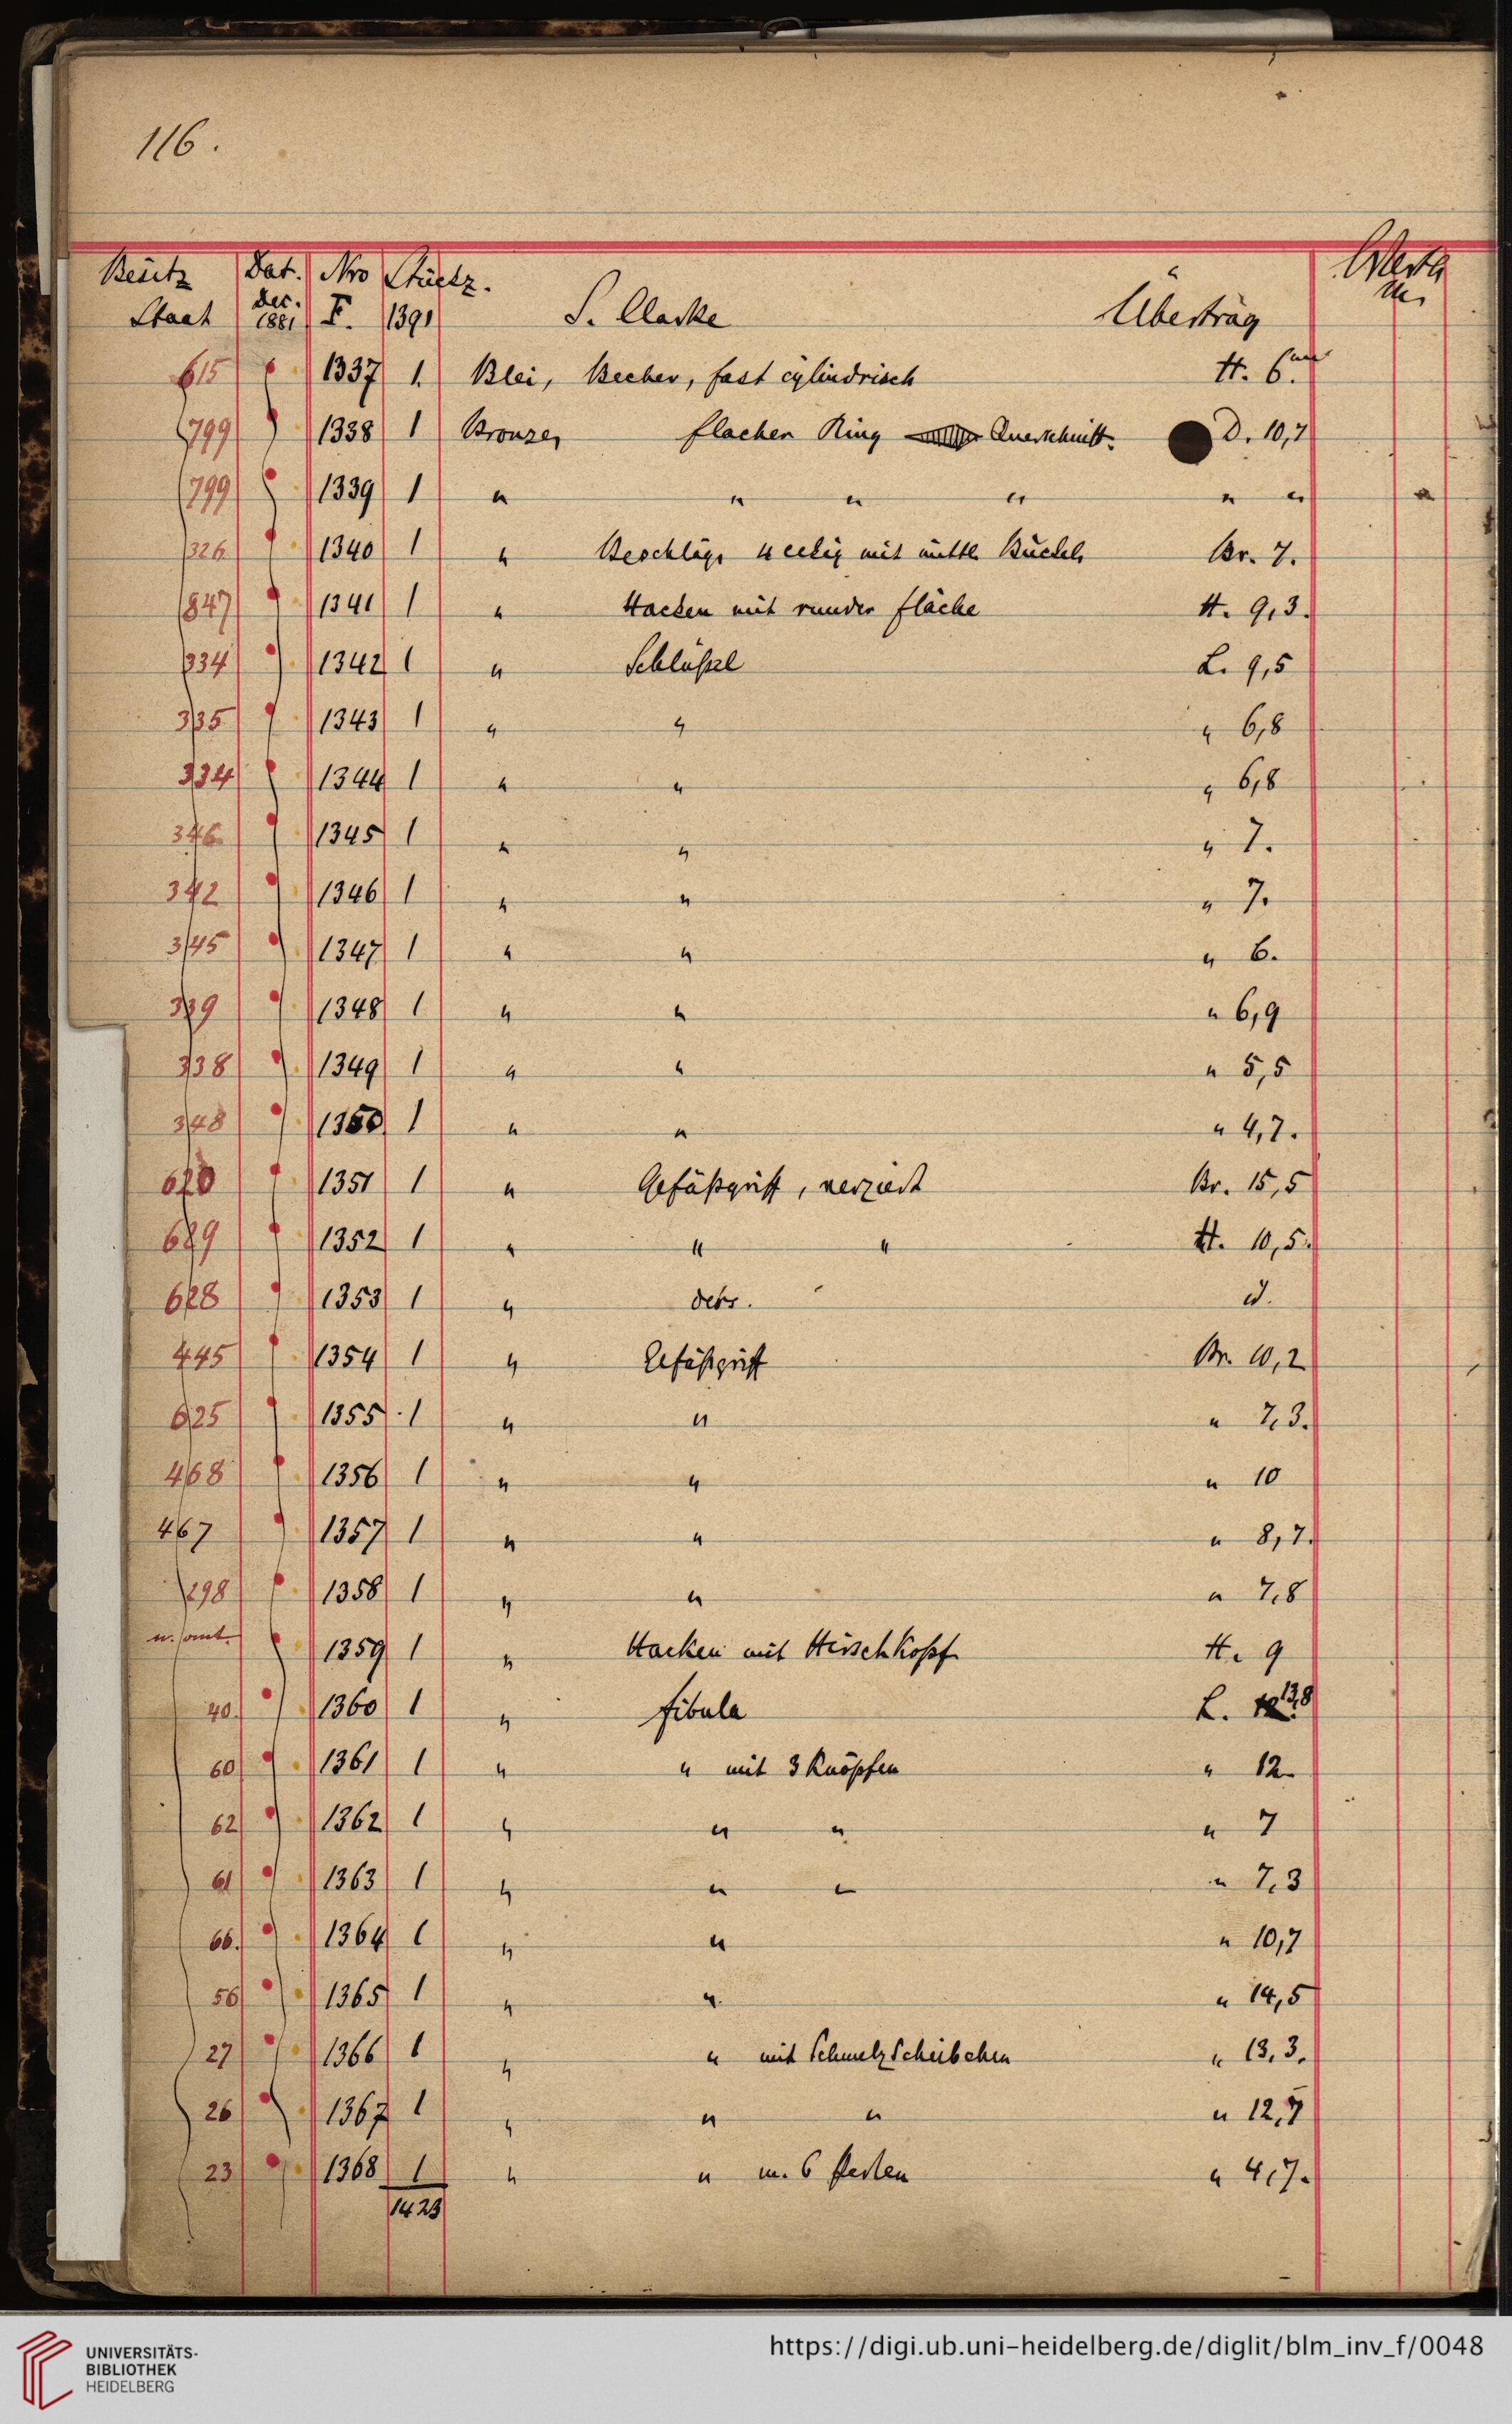 116.
Besitz Dat. Nro Stückz. Werth
Staat Dec. 1881 F. 1391 S. Clarke Übertrag M.
615 1337 1. Blei, Becher, fast cylindrisch H. 6.cm
799 1338 1 Bronze, flacher Ring Querschnitt. D. 10,7
799 1339 1 " " " " " "
326 1340 1 " Beschläge 4 eckig mit mittl. Buckel Br. 7.
847 1341 1 " Hacken mit runder Fläche H. 9,3.
334 1342 1 " Schlüßel L. 9,5
335 1343 1 " " " 6,8
334 1344 1 " " " 6,8
346 1345 1 " " " 7.
342 1346 1 " " " 7.
345 1347 1 " " " 6.
339 1348 1 " " " 6,9
338 1349 1 " " " 5,5
348 1350 1 " " " 4,7.
1351 1 " Gefäßgriff, verziert Br. 15,5
629 1352 1 " " " H. 10,5.
628 1353 1 " dets. d.
445 1354 1 " Gefäßgriff Br. 10,2
625 1355 1 " " " 7,3.
468 1356 1 " " " 10
467 1357 1 " " " 8,7.
298 1358 1 " " " 7,8
1359 1 " Hacken mit Hirschkopf H. 9
40. 1360 1 " Fibula L. 13,8
60 1361 1 " " mit 3 Knöpfen " 12.
62 1362 1 " " " " 7
61 1363 1 " " " " 7,3
66. 1364 1 " " " 10,7
56 1365 1 " " " 14,5
27 1366 1 " " mit Schmelz Scheibchen " 13,3.
26 1367 1 " " " " 12,7
23 1368 1 " " m. 6 Perlen " 4,7.
1423
UNIVERSITÄTS-
BIBLIOTHEK
HEIDELBERG
https://digi.ub.uni-heidelberg.de/diglit/blm_inv_f/0048